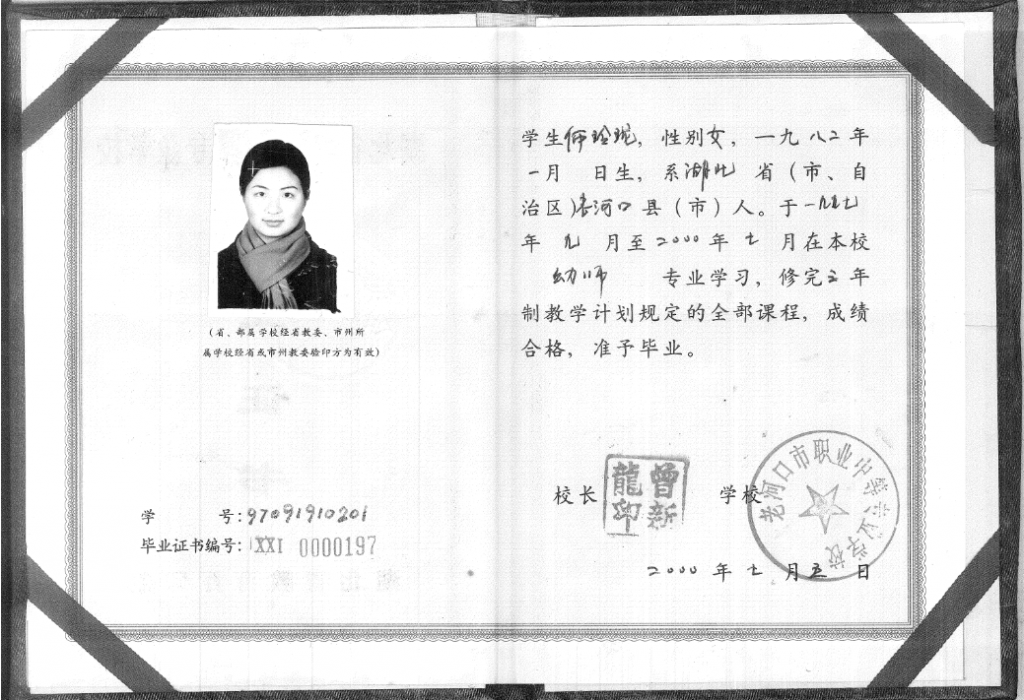 (省、部属学校经省教委、市州所
属学校经省或市州教委验印方为有效)
学 号:97091910201
毕业证书编号:XXI 0000197
学生何玲珑,性别女,一九八二年
一月 日生,系湖北 省(市、自
治区)老河口县(市)人。于一九九七
年 九 月至2000年 七 月在本校
幼师 专业学习,修完三年
制教学计划规定的全部课程,成绩
合格,准予毕业。
校长 曾新龍印 学校
老河口市职业中等专业学校
2000 年 七 月 五 日